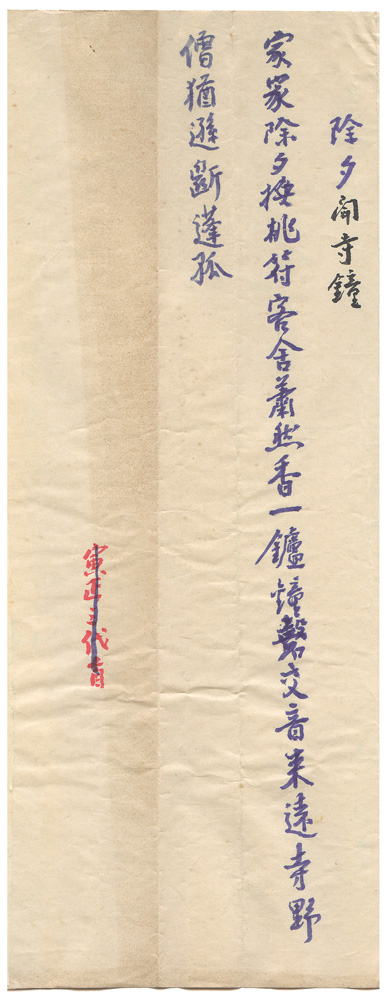 除夕聞寺鐘
家家除夕換桃符客舍蕭然香一鑪鐘磬交音来遠寺野
僧猶遜斷蓬孤
寅正三代